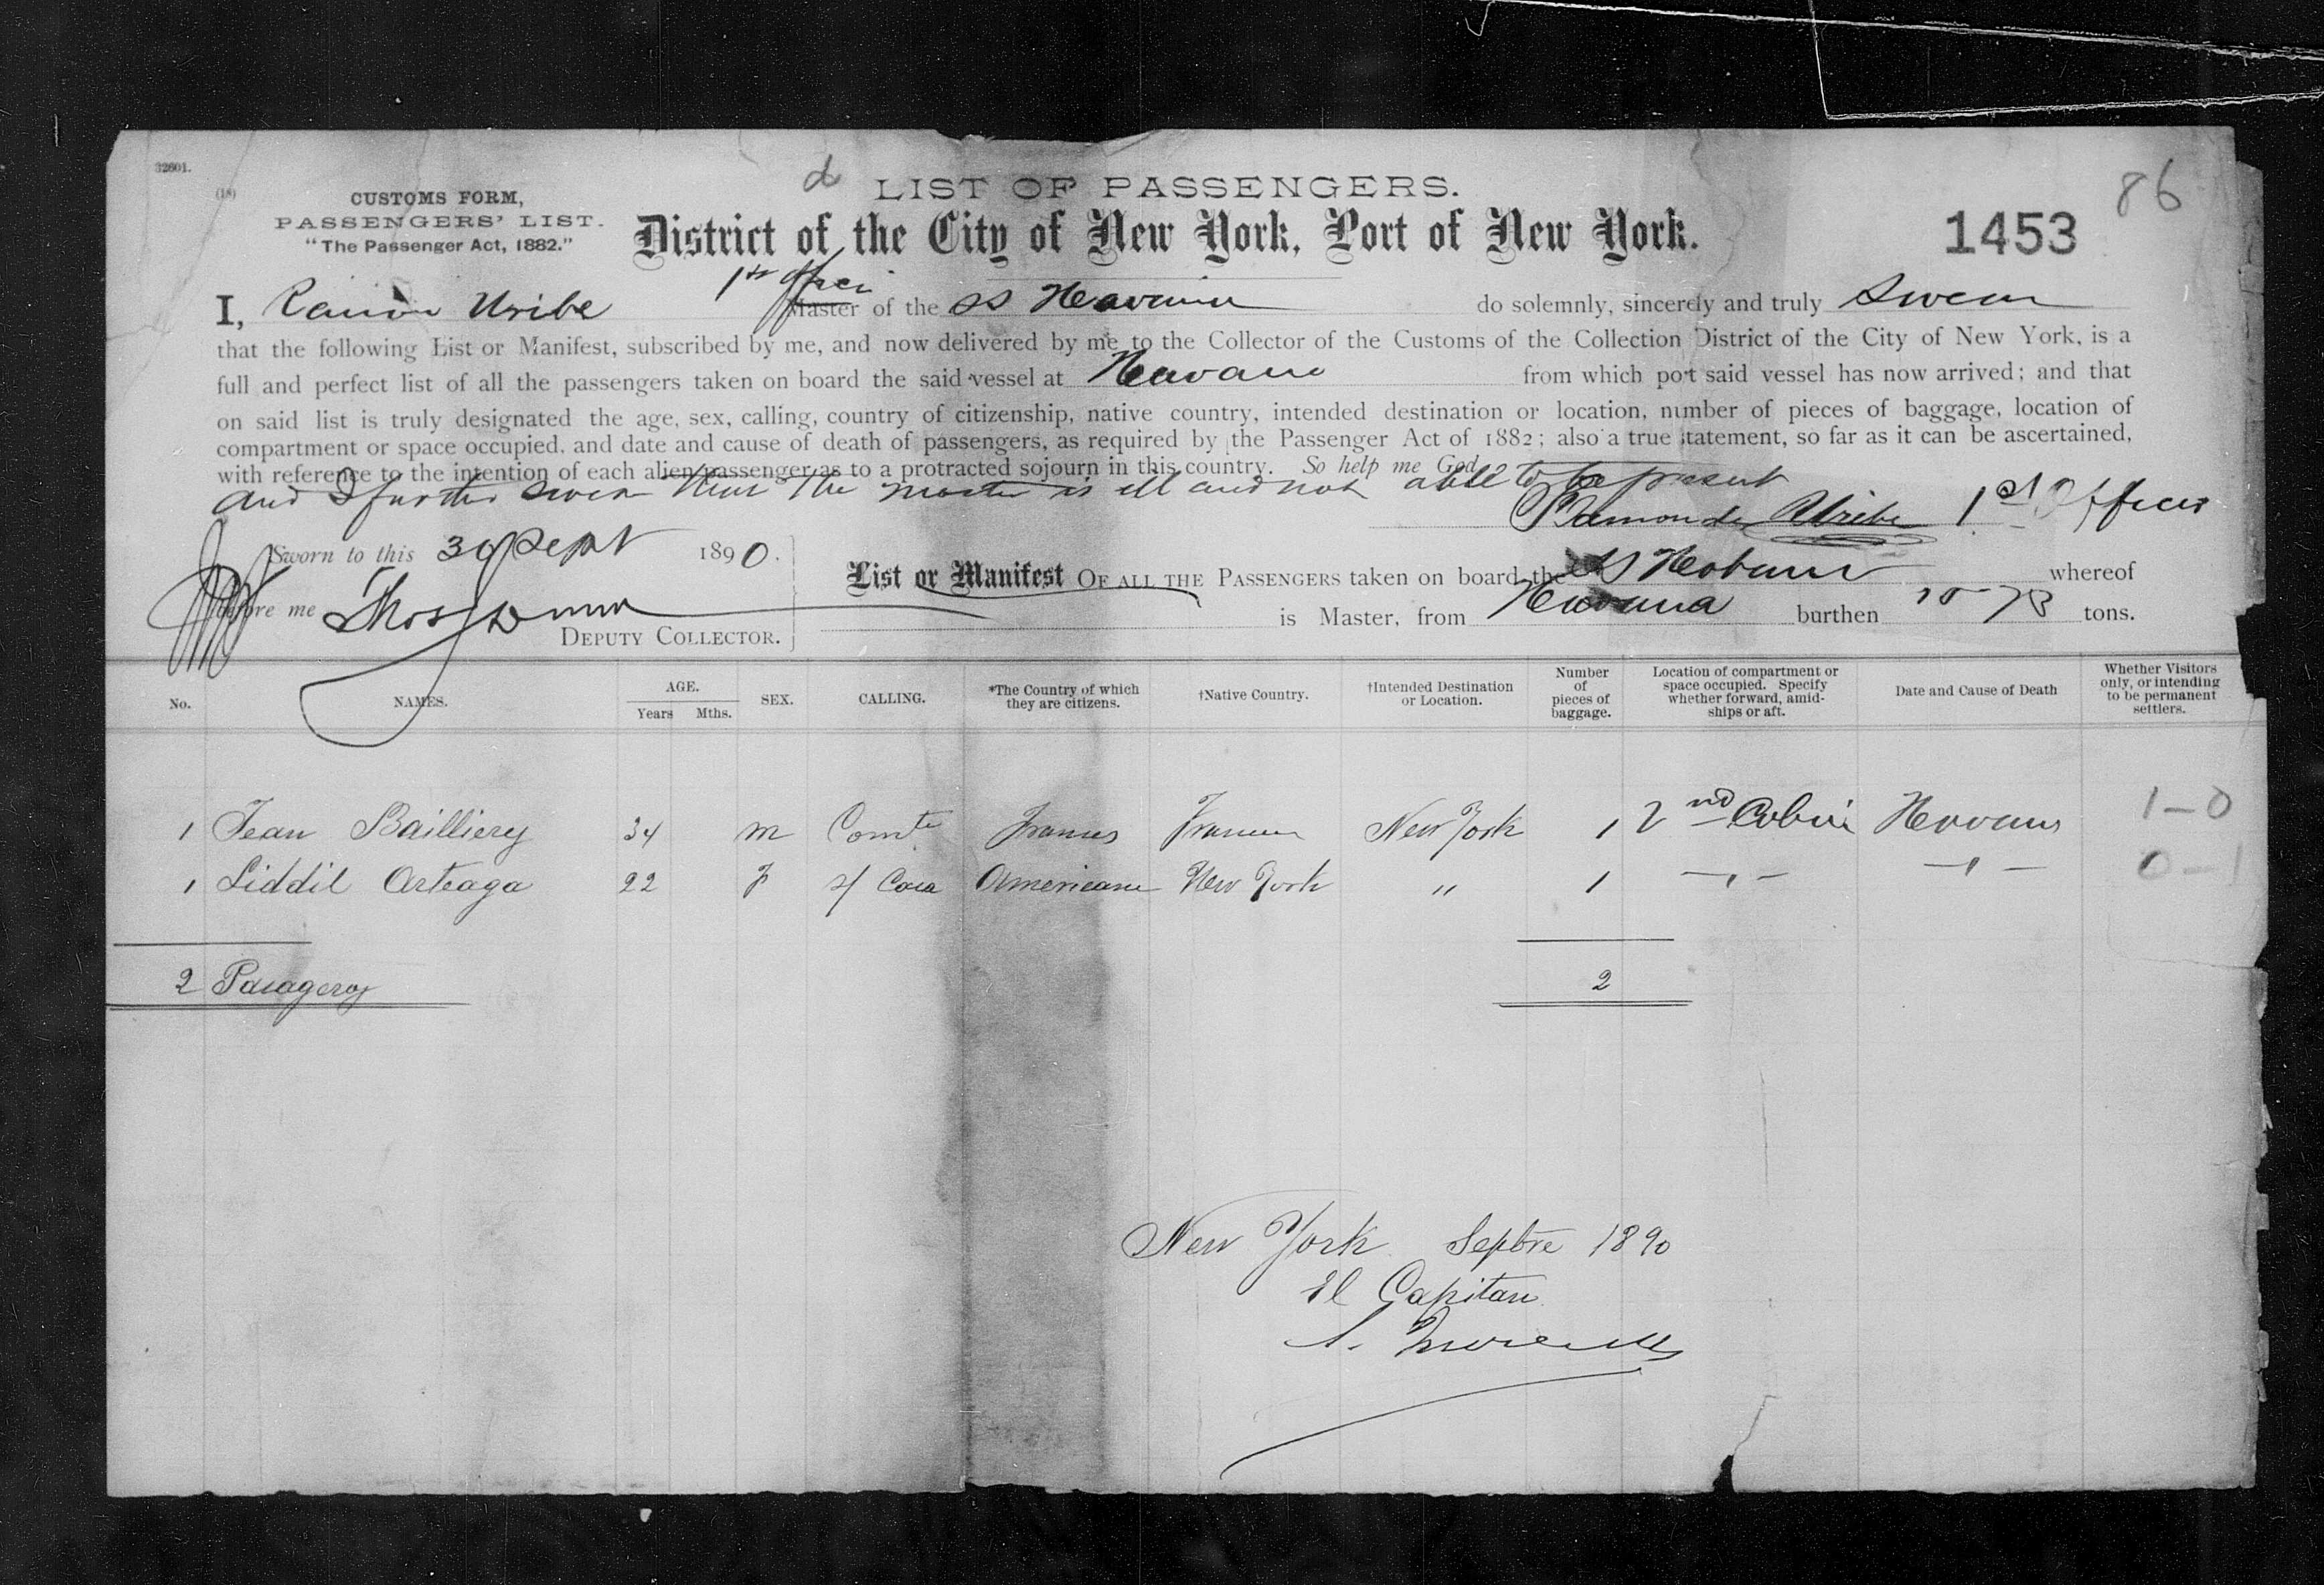 32601.
(18)
CUSTOMS FORM,
PASSENGERS' LIST.
"The Passenger Act, 1882."
d LIST OF PASSENGERS.
District of the City of New York, Port of New York.
1453
86
1st Officer
I, Ramon Uribe Master of the SS Havana do solemnly, sincerely and truly Swear
that the following List or Manifest, subscribed by me, and now delivered by me to the Collector of the Customs of the Collection District of the City of New York, is a
full and perfect list of all the passengers taken on board the said vessel at Havana from which port said vessel has now arrived; and that
on said list is truly designated the age, sex, calling, country of citizenship, native country, intended destination or location, number of pieces of baggage, location of
compartment or space occupied, and date and cause of death of passengers, as required by the Passenger Act of 1882; also a true statement, so far as it can be ascertained,
with reference to the intention of each alien passenger as to a protracted sojourn in this country. So help me God
and I further swear that the master is ill and not able to be present
Ramon de Uribe 1st Officer
Sworn to this 30 Sept 1890.
before me Thos Dunn
DEPUTY COLLECTOR.
List or Manifest OF ALL THE PASSENGERS taken on board the SS Habana whereof
is Master, from Havana burthen 1573 tons.
No. NAMES. AGE. Years Mths. SEX. CALLING. *The Country of which they are citizens. †Native Country. †Intended Destination or Location. Number of pieces of baggage. Location of compartment or space occupied. Specify whether forward, amidships or aft. Date and Cause of Death Whether Visitors only, or intending to be permanent settlers.
1 Jean Bailliery 34 m Comte Frances New York 1 2nd Cabin Havana 1-0
1 Liddil Arteaga 22 F s/ Casa Americana New York " 1 -"- -"- 0-1
2 Pasageros 2
New York Septbre 1890
El Capitan